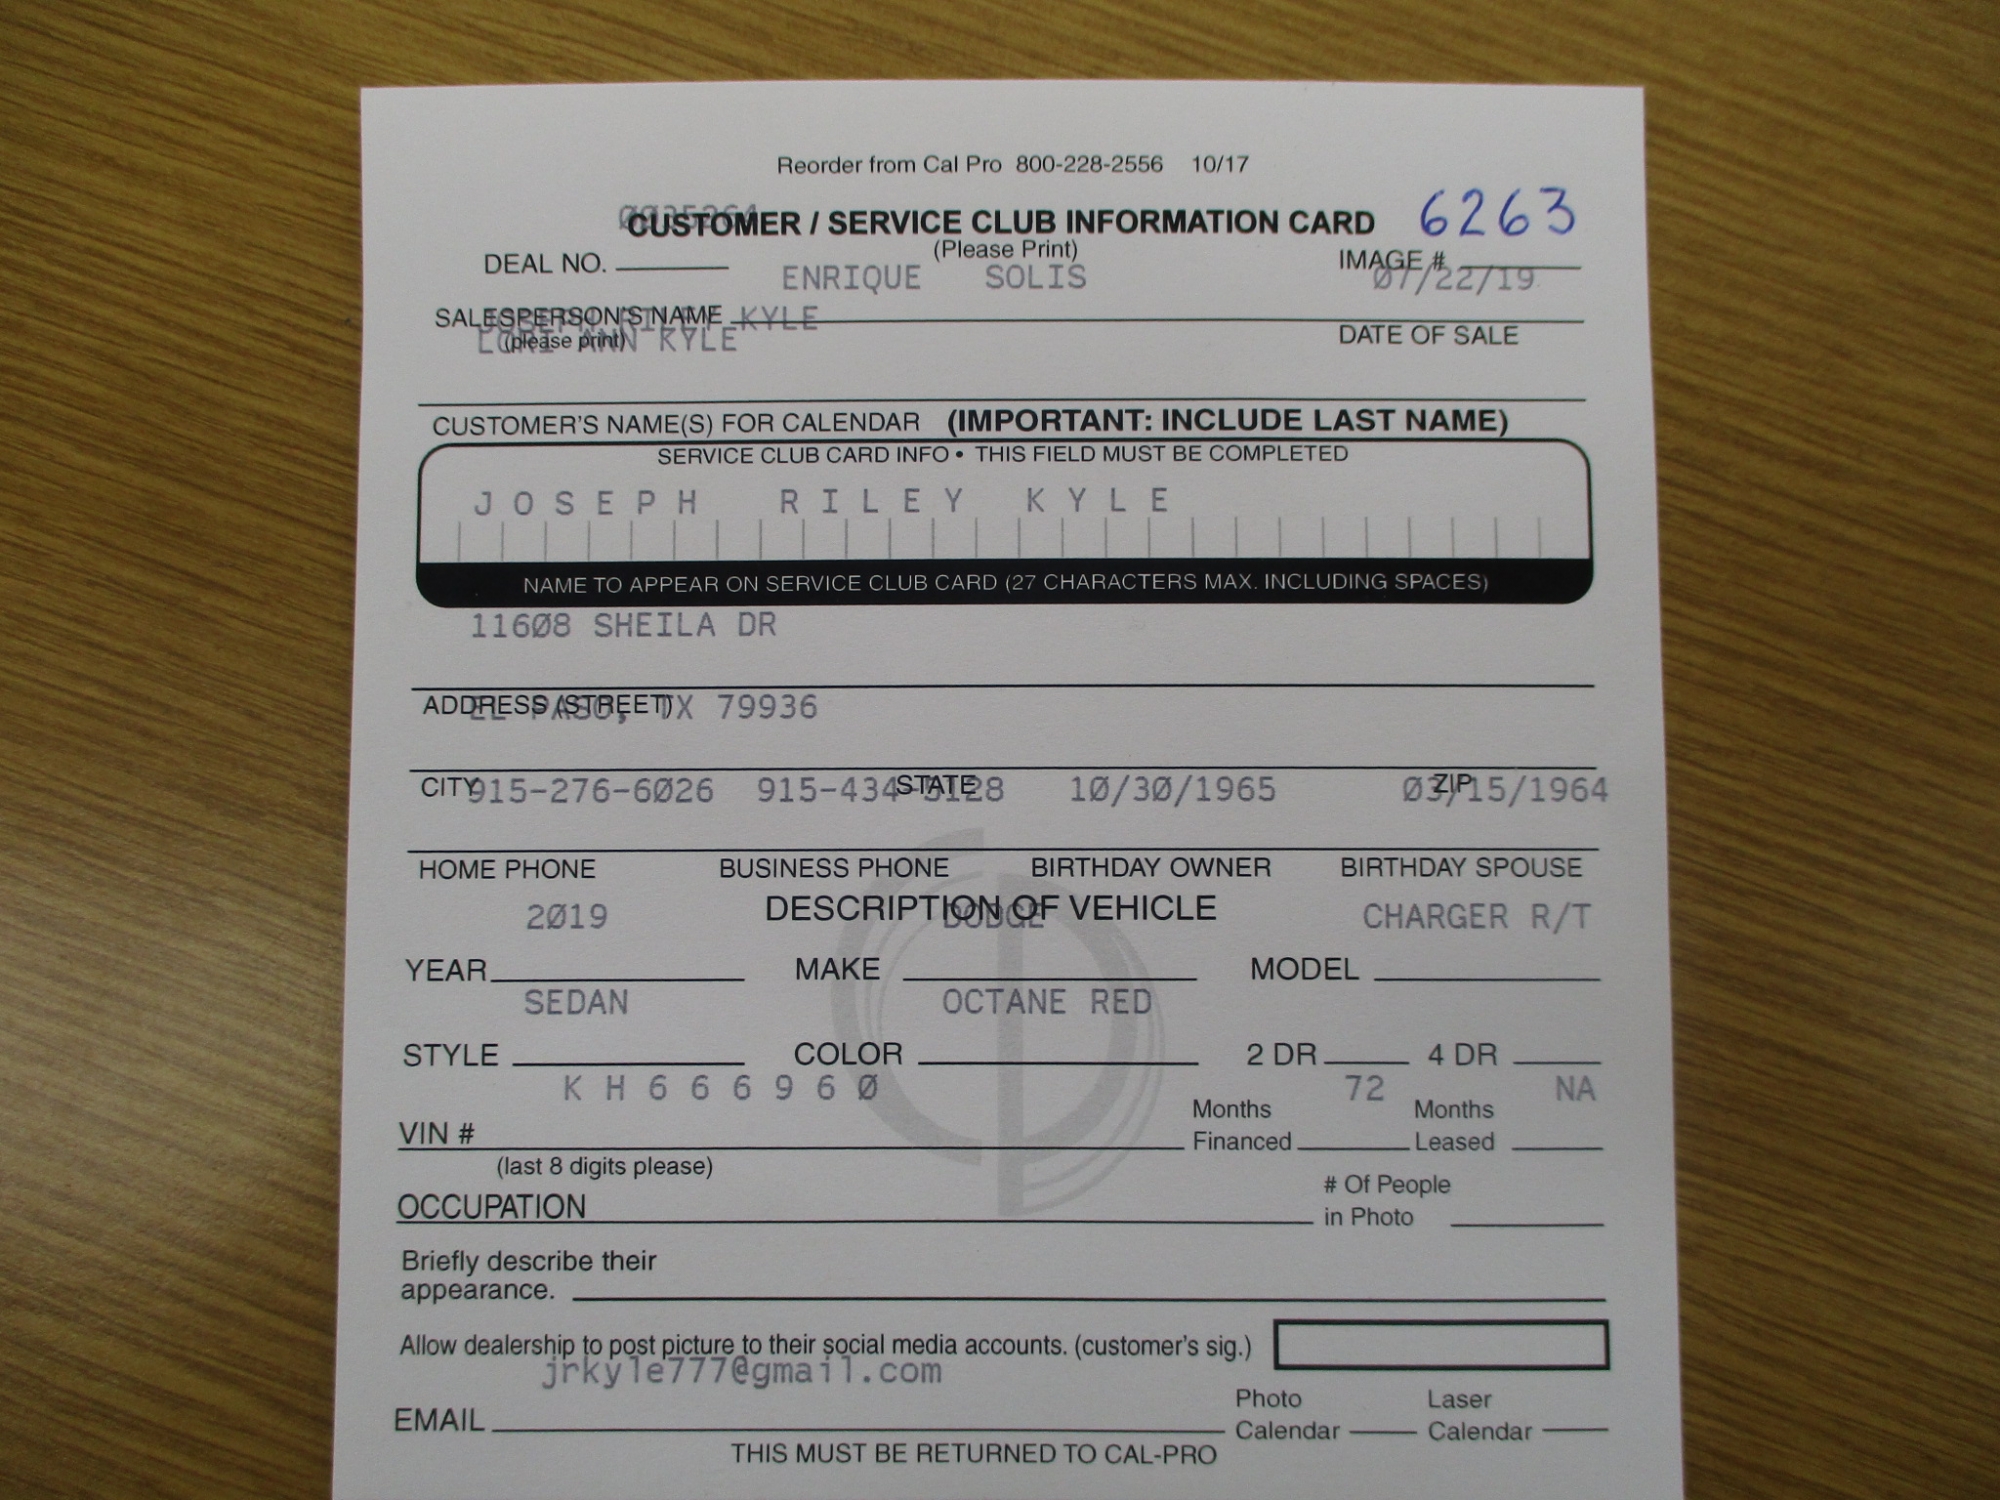 Reorder from Cal Pro 800-228-2556 10/17
CUSTOMER / SERVICE CLUB INFORMATION CARD 6263
(Please Print)
DEAL NO. IMAGE #
ENRIQUE SOLIS 07/22/19
SALESPERSON'S NAME
JOSEPH RILEY KYLE
(please print) DATE OF SALE
LORI ANN KYLE
CUSTOMER'S NAME(S) FOR CALENDAR (IMPORTANT: INCLUDE LAST NAME)
SERVICE CLUB CARD INFO • THIS FIELD MUST BE COMPLETED
JOSEPH RILEY KYLE
NAME TO APPEAR ON SERVICE CLUB CARD (27 CHARACTERS MAX. INCLUDING SPACES)
11608 SHEILA DR
ADDRESS (STREET)
EL PASO, TX 79936
CITY STATE ZIP
915-276-6026 915-434-5128 10/30/1965 03/15/1964
HOME PHONE BUSINESS PHONE BIRTHDAY OWNER BIRTHDAY SPOUSE
DESCRIPTION OF VEHICLE
2019 DODGE CHARGER R/T
YEAR MAKE MODEL
SEDAN OCTANE RED
STYLE COLOR 2 DR 4 DR
KH666960 72 NA
VIN # Months Financed Months Leased
(last 8 digits please)
OCCUPATION # Of People in Photo
Briefly describe their
appearance.
Allow dealership to post picture to their social media accounts. (customer's sig.)
jrkyle777@gmail.com
EMAIL Photo Calendar Laser Calendar
THIS MUST BE RETURNED TO CAL-PRO